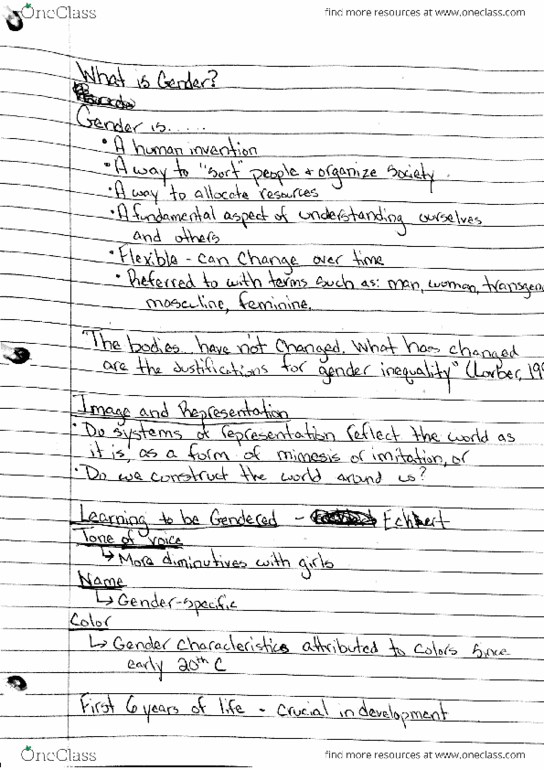 OneClass
find more resources at www.oneclass.com
What is Gender?
Gender is.....
• A human invention
• A way to "sort" people + organize society.
• A way to allocate resources
• A fundamental aspect of understanding ourselves
and others
• Flexible - can change over time
• Referred to with terms such as: man, woman, transgen
masculine, feminine.
"The bodies have not changed. What has changed
are the justifications for gender inequality" (Lorber, 199
Image and Representation
• Do systems of representation reflect the world as
it is, as a form of mimesis or imitation, or
• Do we construct the world around us?
Learning to be Gendered - Eckhert
Tone of voice
↳ More diminutives with girls
Name
↳ Gender-specific
Color
↳ Gender characteristics attributed to colors since
early 20th C
First 6 years of life - crucial in development
OneClass
find more resources at www.oneclass.com